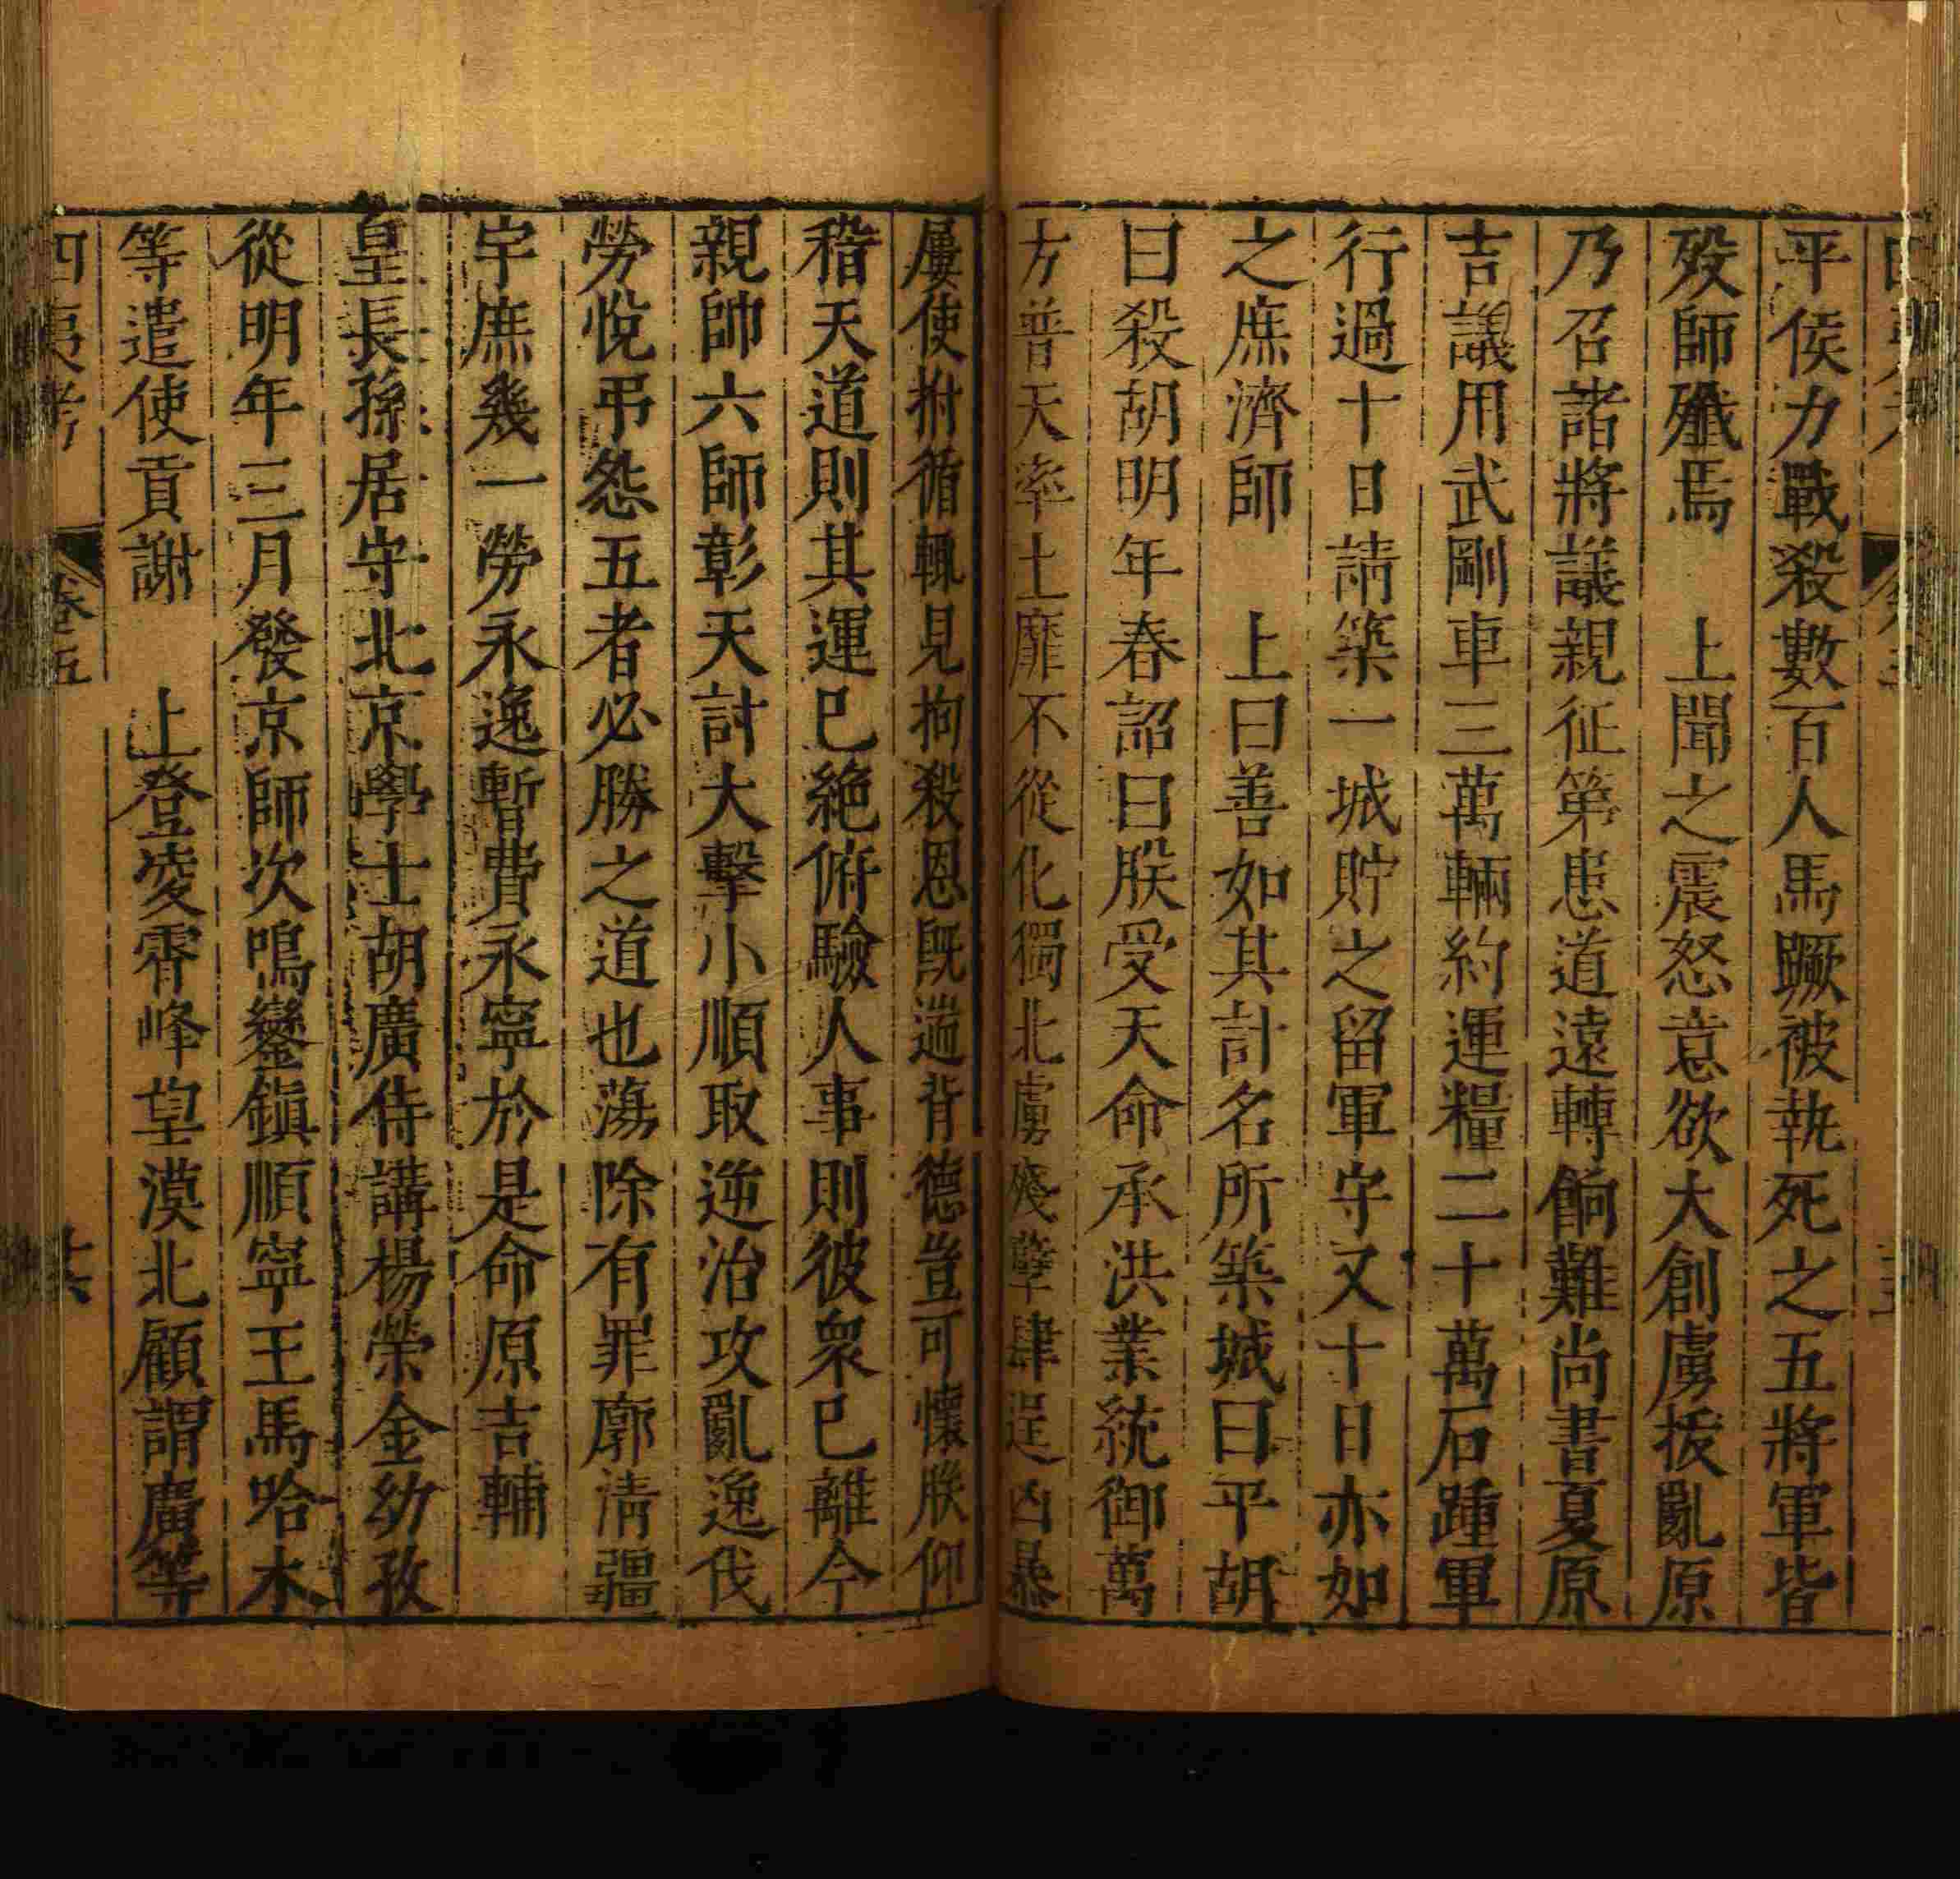 平侯力戰殺數百人馬蹶被執死之五將軍皆
歿師殲焉　上聞之震怒意欲大創虜拔亂原
乃召諸將議親征第患道遠轉餉難尚書夏原
吉議用武剛車三萬輛約運糧二十萬石踵軍
行過十日請築一城貯之留軍守又十日亦如
之庶濟師　上曰善如其計名所築城曰平胡
曰殺胡明年春詔曰朕受天命承洪業統御萬
方普天率土靡不從化獨北虜殘孽肆逞凶暴
屢使拊循輒見拘殺恩旣遄背德豈可懷朕仰
稽天道則其運已絕俯驗人事則彼衆已離今
親帥六師彰天討大擊小順取逆治攻亂逸伐
勞悅弔怨五者必勝之道也蕩除有罪廓淸疆
宇庶幾一勞永逸暫費永寧於是命原吉輔
皇長孫居守北京學士胡廣侍講楊榮金幼孜
從明年三月發京師次鳴鑾鎮順寧王馬哈木
等遣使貢謝　上登凌霄峰望漠北顧謂廣等
四夷考　卷五　十六